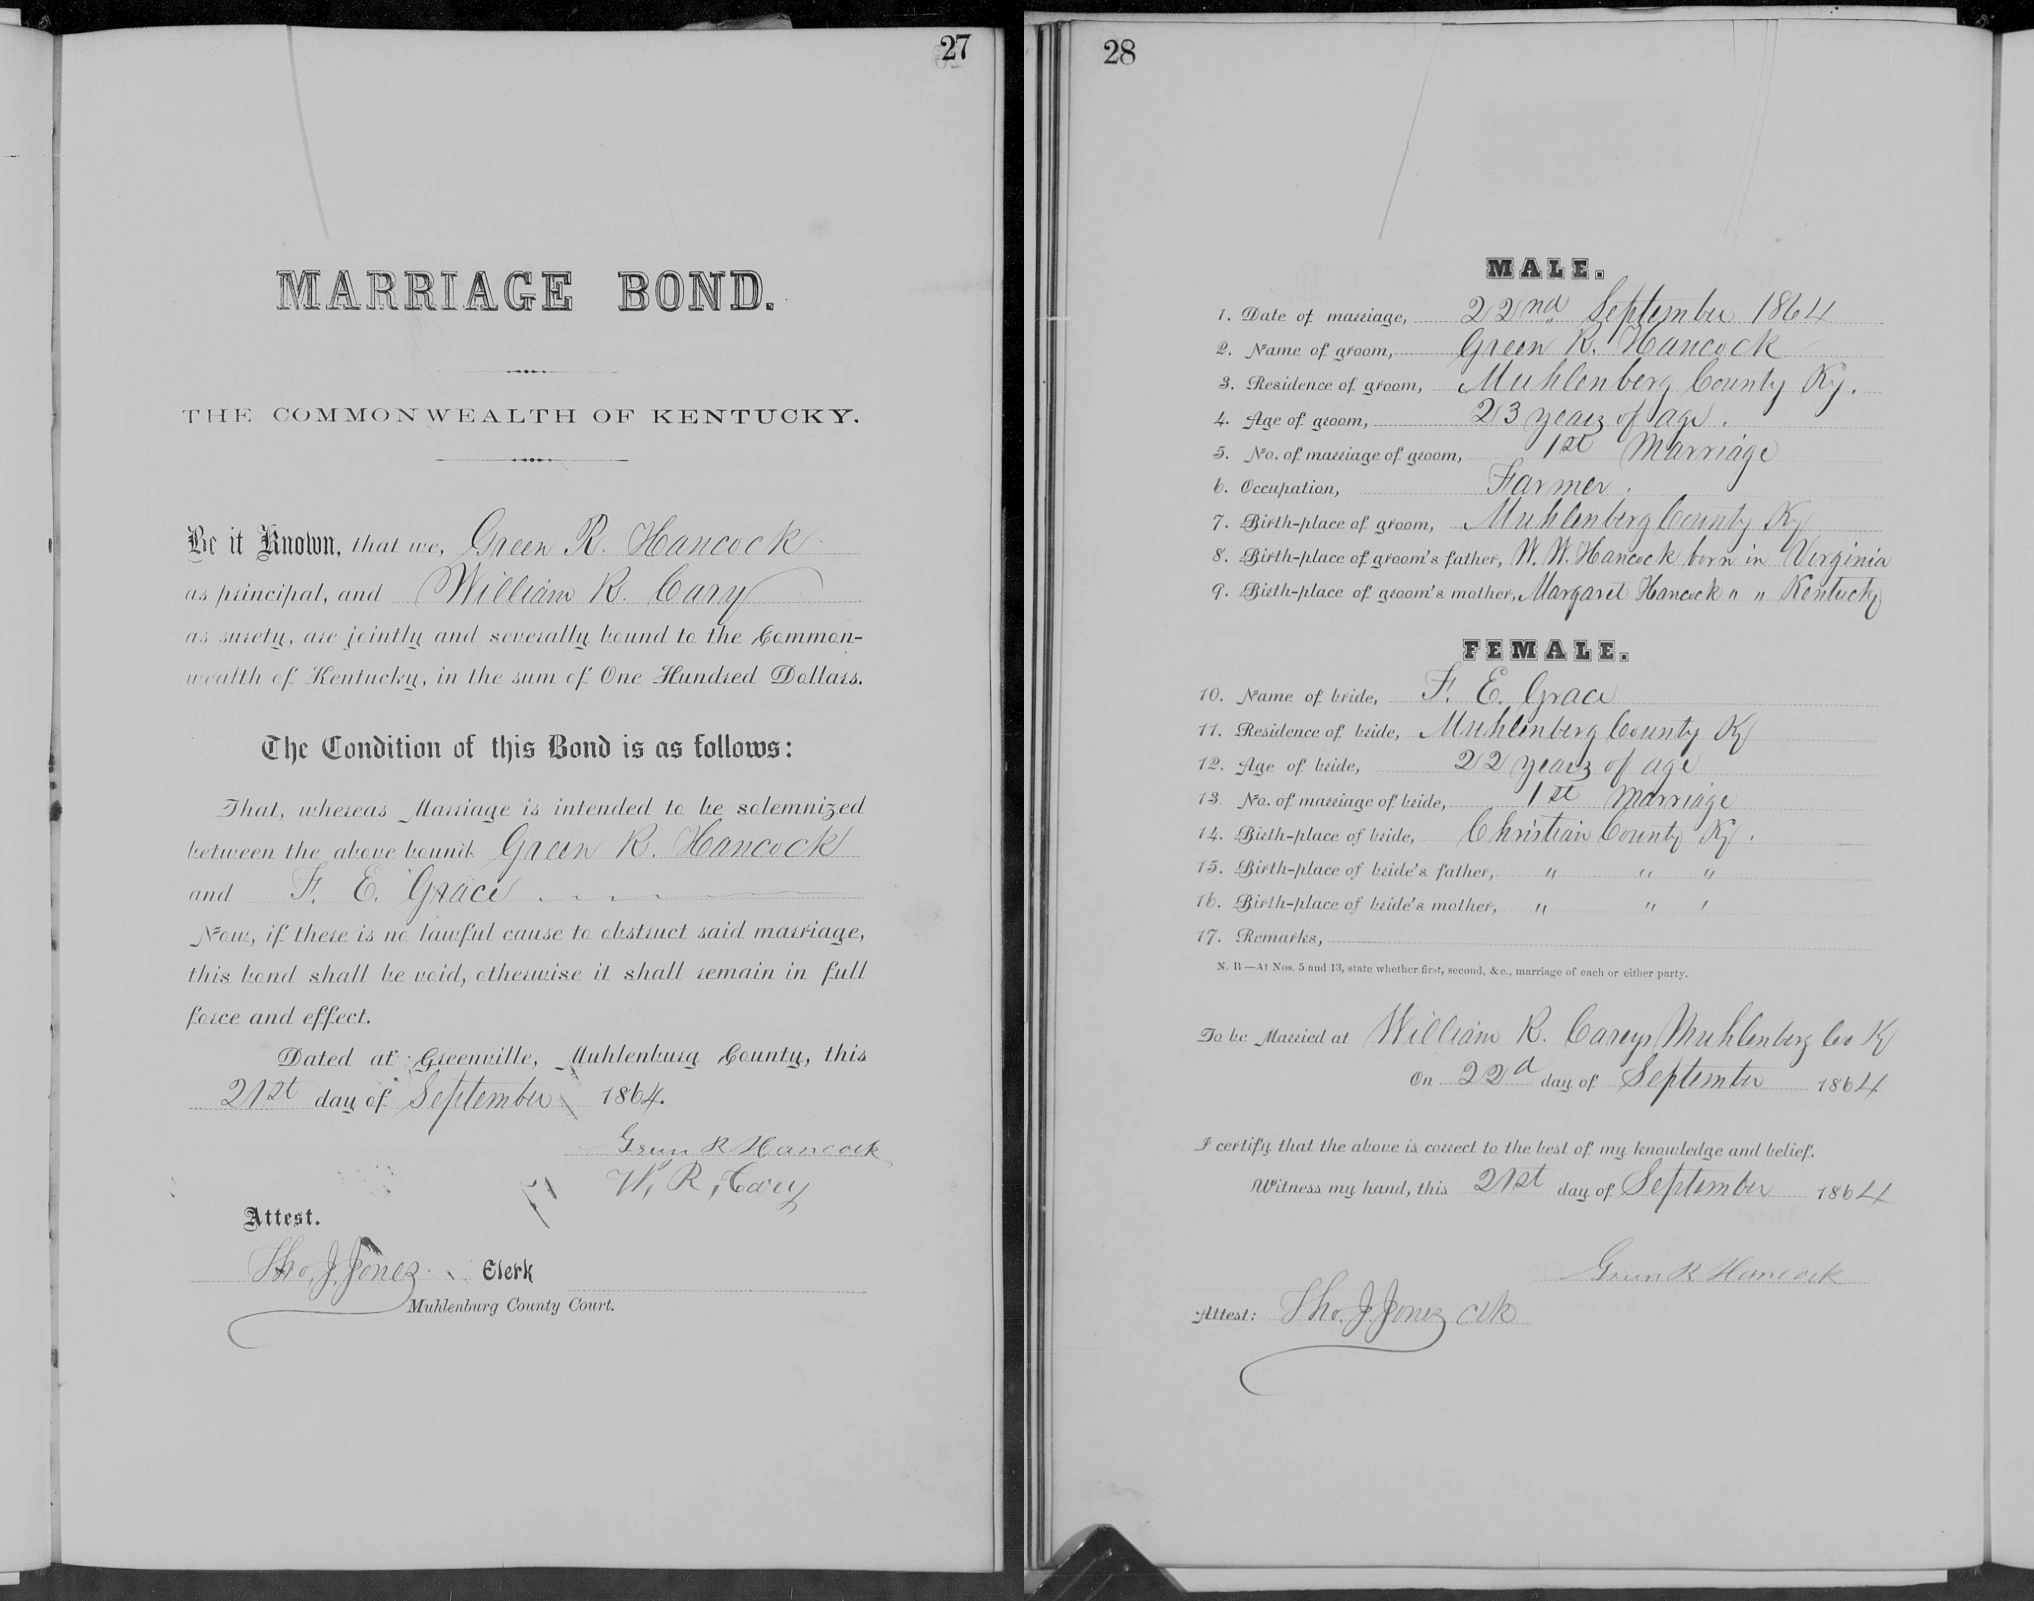 27
MARRIAGE BOND.
THE COMMONWEALTH OF KENTUCKY.
Be it Known, that we, Green R. Hancock
as principal, and William R. Cary
as surety, are jointly and severally bound to the Common-
wealth of Kentucky, in the sum of One Hundred Dollars.
The Condition of this Bond is as follows:
That, whereas Marriage is intended to be solemnized
between the above bound Green R. Hancock
and F. E. Grace
Now, if there is no lawful cause to obstruct said marriage,
this bond shall be void, otherwise it shall remain in full
force and effect.
Dated at Greenville, Muhlenburg County, this
21st day of September 1864.
Green R Hancock
W. R. Cary
Attest.
Tho. J. Jones Clerk
Muhlenburg County Court.
28
MALE.
1. Date of marriage, 22nd September 1864
2. Name of groom, Green R. Hancock
3. Residence of groom, Muhlenberg County Ky.
4. Age of groom, 23 years of age.
5. No. of marriage of groom, 1st Marriage
6. Occupation, Farmer.
7. Birth-place of groom, Muhlenberg County Ky
8. Birth-place of groom's father, W. W. Hancock born in Virginia
9. Birth-place of groom's mother, Margaret Hancock " " Kentucky
FEMALE.
10. Name of bride, F. E. Grace
11. Residence of bride, Muhlenberg County Ky
12. Age of bride, 22 years of age
13. No. of marriage of bride, 1st Marriage
14. Birth-place of bride, Christian County Ky.
15. Birth-place of bride's father, " " "
16. Birth-place of bride's mother, " " "
17. Remarks,
N. B—At Nos. 5 and 13, state whether first, second, &c., marriage of each or either party.
To be Married at William R. Careys Muhlenberg Co Ky
On 22d day of September 1864
I certify that the above is correct to the best of my knowledge and belief.
Witness my hand, this 21st day of September 1864
Green R Hancock
Attest: Tho. J. Jones Clk